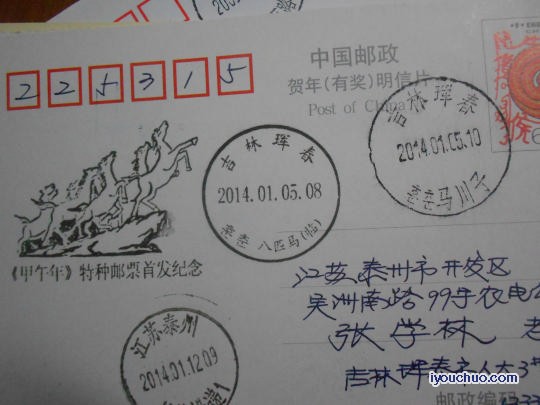 225315
中国邮政
贺年(有奖)明信片
Post of China
吉林珲春
2014.01.05.08
八匹马(临)
吉林珲春
2014.01.05.10
马川子
《甲午年》特种邮票首发纪念
江苏泰州市开发区
吴洲南路99号农电
张学林
江苏泰州
2014.01.12.09
吉林珲春市人大
邮政编码
iyouchuo.com